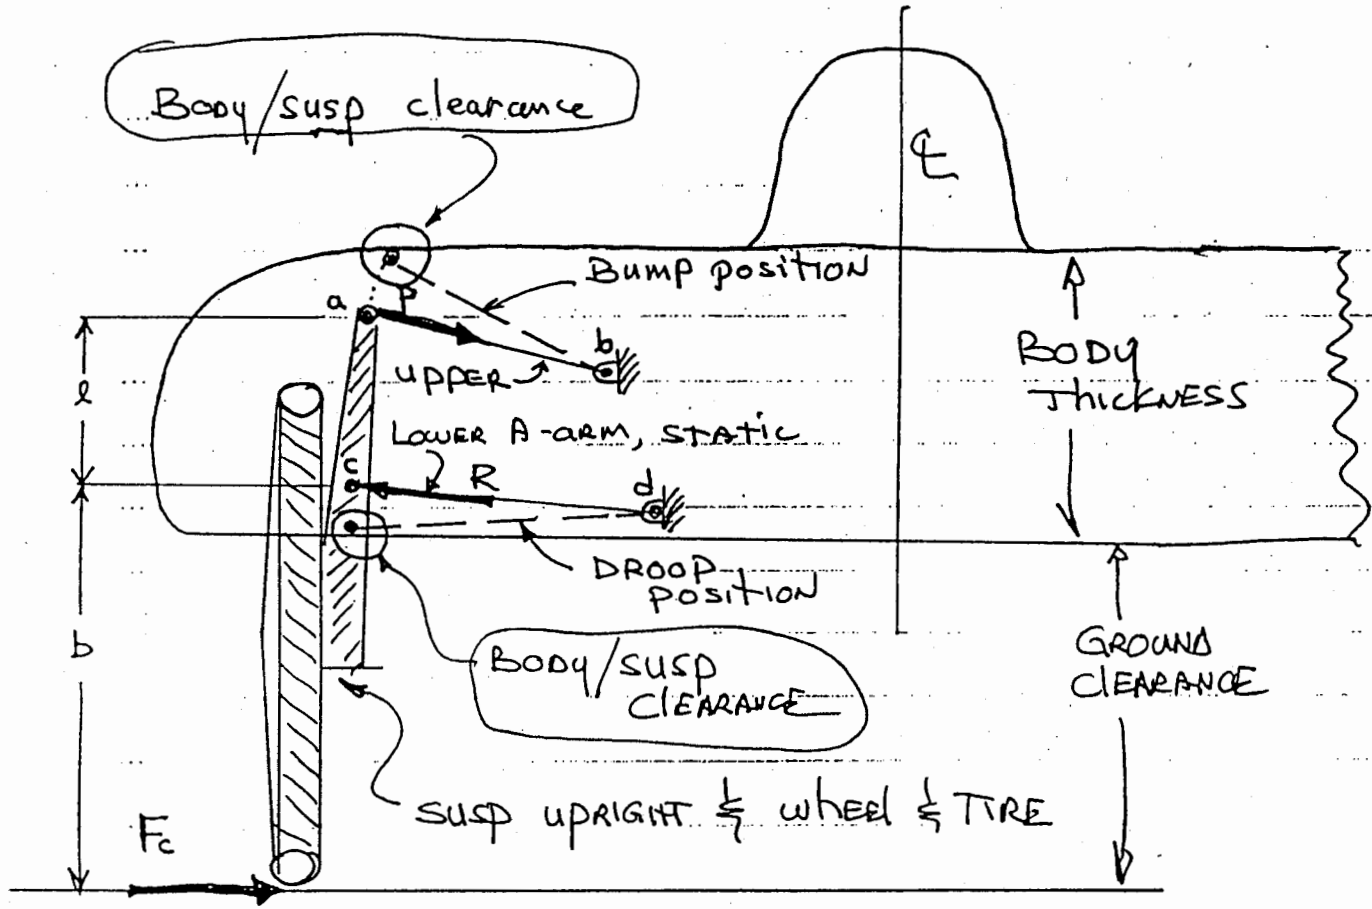 Body/susp clearance
℄
Bump position
a
P
b
UPPER
Body
Thickness
l
LOWER A-arm, STATIC
c
R
d
DROOP
position
b
Body/susp
CLEARANCE
GROUND
ClEARANCE
SUSP UPRIGHT & wheel & TIRE
Fc